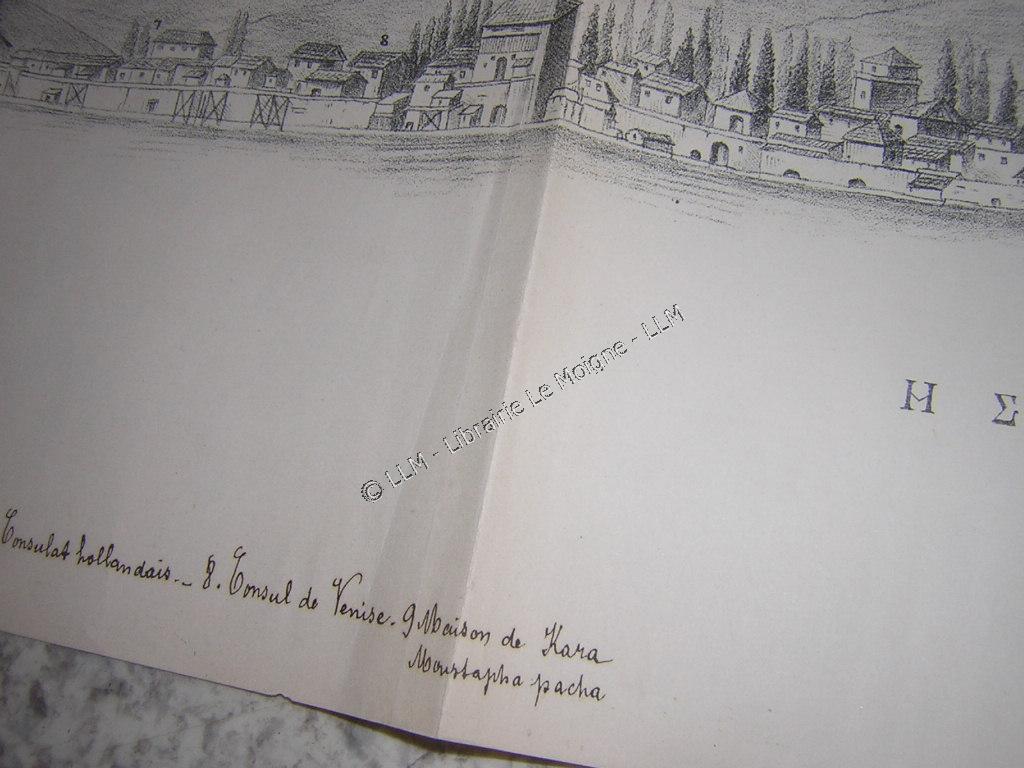 7
8
© LLM - Librairie Le Moigne - LLM
Η Σ
Consulat hollandais._ 8. Consul de Venise. 9 Maison de Kara
Moustapha pacha